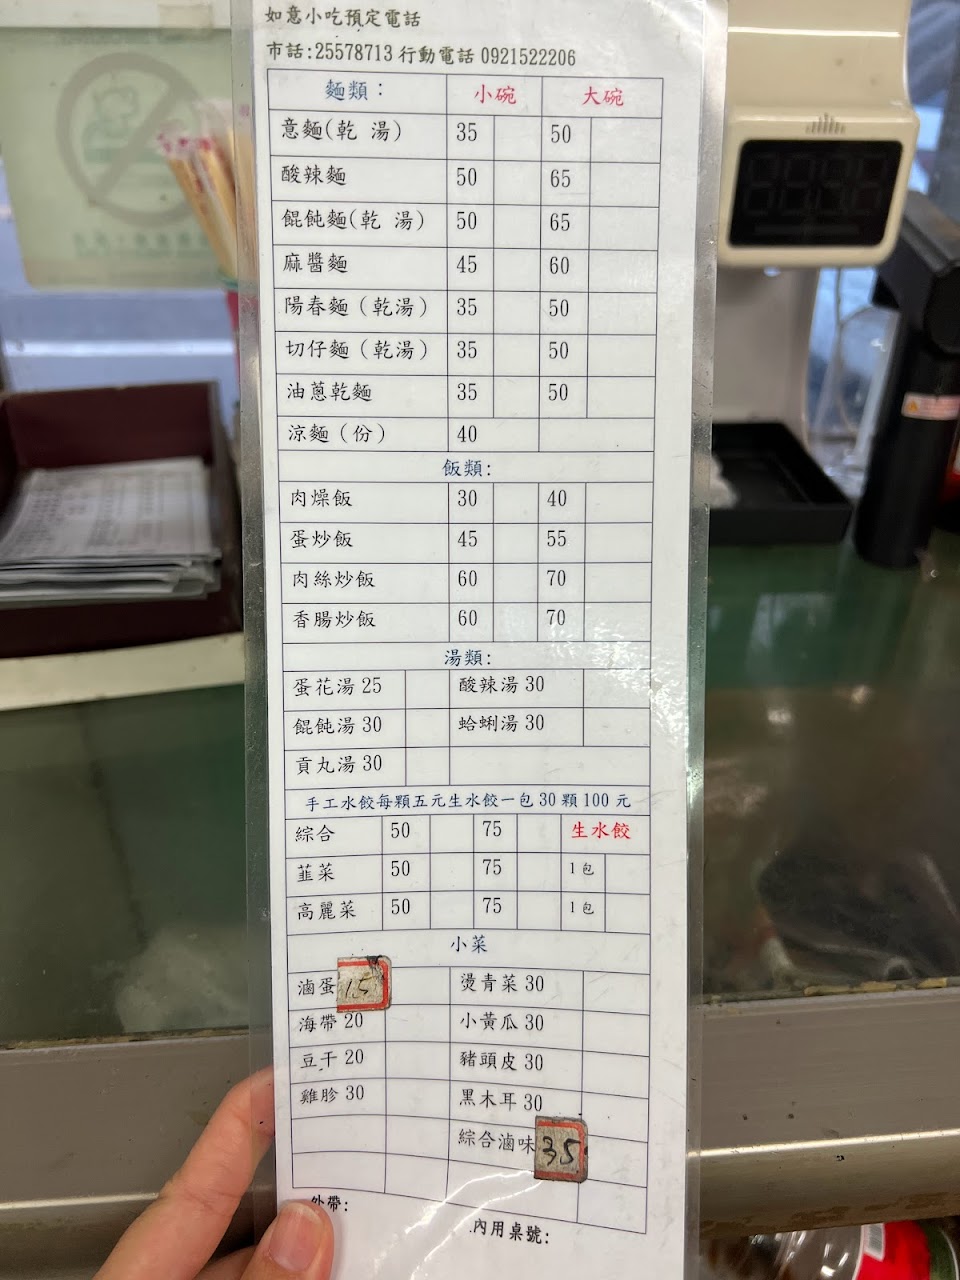 如意小吃預定電話
市話:25578713 行動電話 0921522206
麵類： 小碗 大碗
意麵(乾 湯) 35 50
酸辣麵 50 65
餛飩麵(乾 湯) 50 65
麻醬麵 45 60
陽春麵（乾湯） 35 50
切仔麵（乾湯） 35 50
油蔥乾麵 35 50
涼麵（份） 40
飯類:
肉燥飯 30 40
蛋炒飯 45 55
肉絲炒飯 60 70
香腸炒飯 60 70
湯類:
蛋花湯 25 酸辣湯 30
餛飩湯 30 蛤蜊湯 30
貢丸湯 30
手工水餃每顆五元生水餃一包 30 顆 100 元
綜合 50 75 生水餃
韮菜 50 75 1 包
高麗菜 50 75 1 包
小菜
滷蛋 15 燙青菜 30
海帶 20 小黃瓜 30
豆干 20 豬頭皮 30
雞胗 30 黑木耳 30
綜合滷味 35
外帶:
內用桌號: